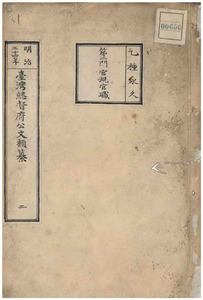 乙種永久
第二門 官規官職
明治
三十四年
臺灣總督府公文類纂
二